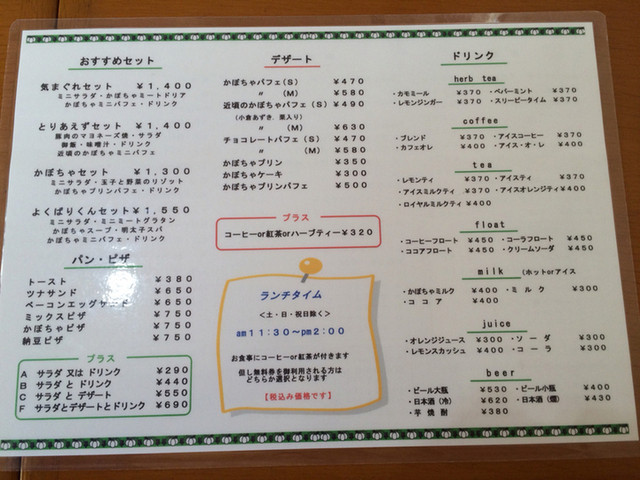 おすすめセット
気まぐれセット ¥1,400
ミニサラダ・かぼちゃミートドリア
かぼちゃミニパフェ・ドリンク
とりあえずセット ¥1,400
豚肉のマヨネーズ焼・サラダ
御飯・味噌汁・ドリンク
近頃のかぼちゃミニパフェ
かぼちゃセット ¥1,300
ミニサラダ・玉子と野菜のリゾット
かぼちゃプリン・ドリンク
よくばりくんセット¥1,550
ミニサラダ・ミニミートグラタン
かぼちゃスープ・明太子スパ
かぼちゃミニパフェ・ドリンク
パン・ピザ
トースト ¥380
ツナサンド ¥650
ベーコンエッグサンド ¥650
ミックスピザ ¥750
かぼちゃピザ ¥750
納豆ピザ ¥750
プラス
A サラダ又はドリンク ¥290
B サラダとドリンク ¥440
C サラダとデザート ¥550
F サラダとデザートとドリンク ¥690
デザート
かぼちゃパフェ(S) ¥470
〃 (M) ¥580
近頃のかぼちゃパフェ(S) ¥490
(小倉あずき、栗入り)
〃 (M) ¥630
チョコレートパフェ(S) ¥470
〃 (M) ¥580
かぼちゃプリン ¥350
かぼちゃケーキ ¥300
かぼちゃプリンパフェ ¥500
プラス
コーヒーor紅茶orハーブティー¥320
ランチタイム
<土・日・祝日除く>
am11:30～pm2:00
お食事にコーヒーor紅茶が付きます
但し無料券を御利用される方は
どちらか選択となります
【税込み価格です】
ドリンク
herb tea
・カモミール ¥370 ・ペパーミント ¥370
・レモンジンガー ¥370 ・スリーピータイム ¥370
coffee
・ブレンド ¥370 ・アイスコーヒー ¥370
・カフェオレ ¥400 ・アイス・オ・レ ¥400
tea
・レモンティ ¥370 ・アイスティ ¥370
・アイスミルクティ ¥370 ・アイスオレンジティ ¥400
・ロイヤルミルクティ ¥400
float
・コーヒーフロート ¥450 ・コーラフロート ¥450
・ココアフロート ¥450 ・クリームソーダ ¥450
milk (ホットorアイス
・かぼちゃミルク ¥400 ・ミルク ¥300
・ココア ¥400
juice
・オレンジジュース ¥300 ・ソーダ ¥300
・レモンスカッシュ ¥400 ・コーラ ¥300
beer
・ビール大瓶 ¥530 ・ビール小瓶 ¥400
・日本酒(冷) ¥620 ・日本酒(燗) ¥430
・芋焼酎 ¥380